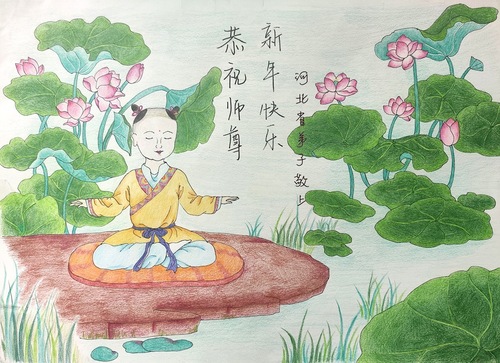 恭祝师尊
新年快乐
河北省弟子敬上